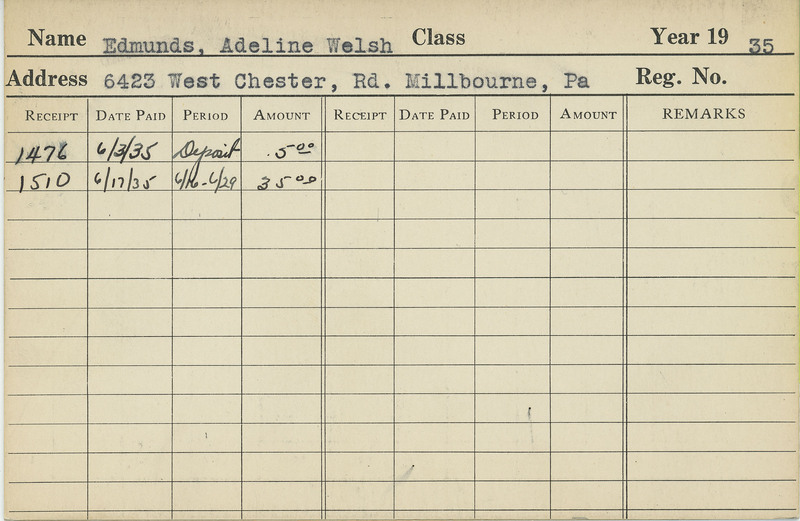 Name Edmunds, Adeline Welsh Class Year 19 35
Address 6423 West Chester, Rd. Millbourne, Pa Reg. No.
RECEIPT DATE PAID PERIOD AMOUNT RECEIPT DATE PAID PERIOD AMOUNT REMARKS
1476 6/3/35 Deposit 5 00
1510 6/17/35 6/16-6/29 35 00